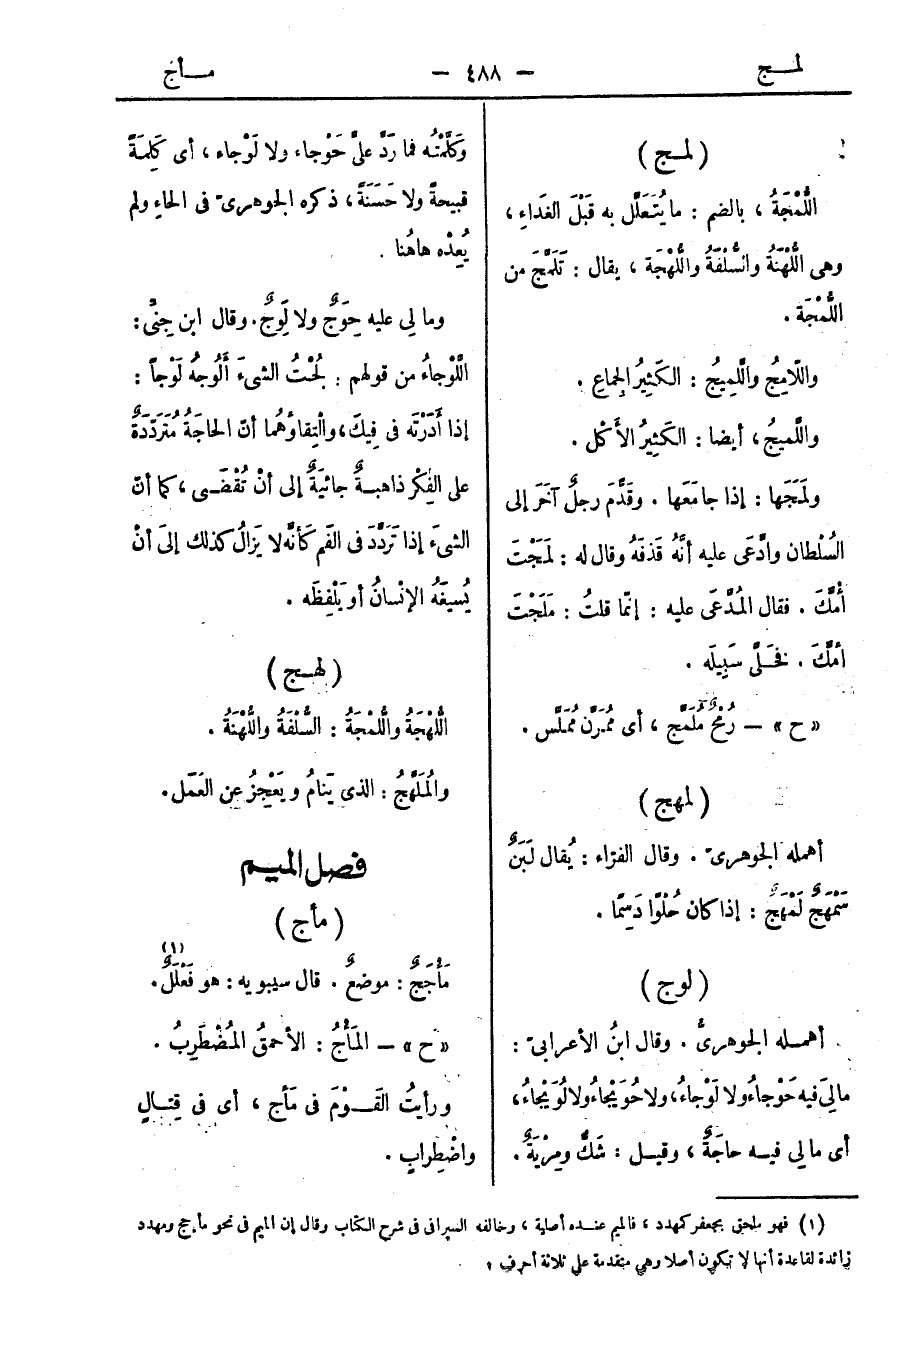 لمج — ٤٨٨ — مأج
(لمج)
اللُّمْجَةُ ، بالضم : ما يُتَعَلَّل به قَبْلَ الغَداءِ ،
وهى اللُّهْنَةُ والسُّلْفَةُ واللُّهْجَة ، يقال : تَلَمَّجَ من
اللُّمْجَة .
واللّامِجُ واللَّمِيجُ : الكَثِيرُ الجِماعِ .
واللَّمِيجُ ، أيضا : الكَثِيرُ الأَكْل .
ولَمَجَها : إذا جامَعَها . وقَدَّمَ رجلٌ آخَرَ إلى
السُلْطان وادَّعَى عليه أنَّهُ قذفَهُ وقال له : لَمَجْتَ
أُمَّكَ . فقال المُدَّعَى عليه : إنّما قلتُ : مَلَجْتَ
أمَّكَ . فخَلَّى سَبِيلَه .
« ح » — رُمْحٌ مُلَمَّج ، أى مُمَرَّن مُمَلَّس .
(لمهج)
أهمله الجوهرىّ . وقال الفرّاء : يُقال لَبَنٌ
سَمْهَجٌ لَمْهَجٌ : إذا كان حُلْوًا دَسِمًا .
(لوج)
أهمله الجوهرىُّ . وقال ابنُ الأعرابىّ :
مالِىَ فيه حَوْجاءُ ولا لَوْجاءُ، ولا حُوَيْجاءُ ولا لُوَيْجاءُ،
أى ما لِى فيه حاجَةٌ ، وقيل : شَكٌّ ومِرْيَةٌ .
وكَلَّمْتُه فما رَدَّ علىَّ حَوْجاء ولا لَوْجاء ، أى كَلِمَةً
قبيحةً ولا حَسَنَةً ، ذكره الجوهرىّ فى الحاءِ ولم
يُعِدْه هاهُنا .
وما لِى عليه حِوَجٌ ولا لِوَجٌ. وقال ابن جِنِّى :
اللَّوْجاءُ من قولهم : لُجْتُ الشىءَ ألُوجُهُ لَوْجاً :
إذا أدَرْتَه فى فِيكَ، والْتِقاؤُهُما أنّ الحاجَةَ مُتَرَدِّدَةٌ
على الفِكْر ذاهبةٌ جائيَةٌ إلى أنْ تُقْضَى ، كما أنّ
الشىءَ إذا تَرَدَّدَ فى الفَم كأنّه لا يَزالُ كذلك إلىَ أنْ
يُسيغَهُ الإنْسانُ أو يَلْفِظَه .
(لهج)
اللُّهْجَةُ واللُّمْجَةُ : السُّلْفَةُ واللُّهْنَةُ .
والمُلَهَّجُ : الذى يَنامُ ويَعْجِزُ عن العَمَل.
فصل الميم
(مأج)
مَأْجَجٌ : موضعٌ . قال سيبويه : هو فَعْلَلٌ (١).
« ح » — المَأْجُ : الأحمقُ المُضْطَرِبُ .
ورأيتُ القَوْمَ فى مَأْج ، أى فى قِتالٍ
واضْطِرابٍ .
(١) فهو ملحق بجعفر كمهدد ، فالميم عنده أصلية ، وخالفه السيرافى فى شرح الكتاب وقال إن الميم فى نحو مأجج ومهدد
زائدة لقاعدة أنها لا تكون أصلا وهى متقدمة على ثلاثة أحرف .